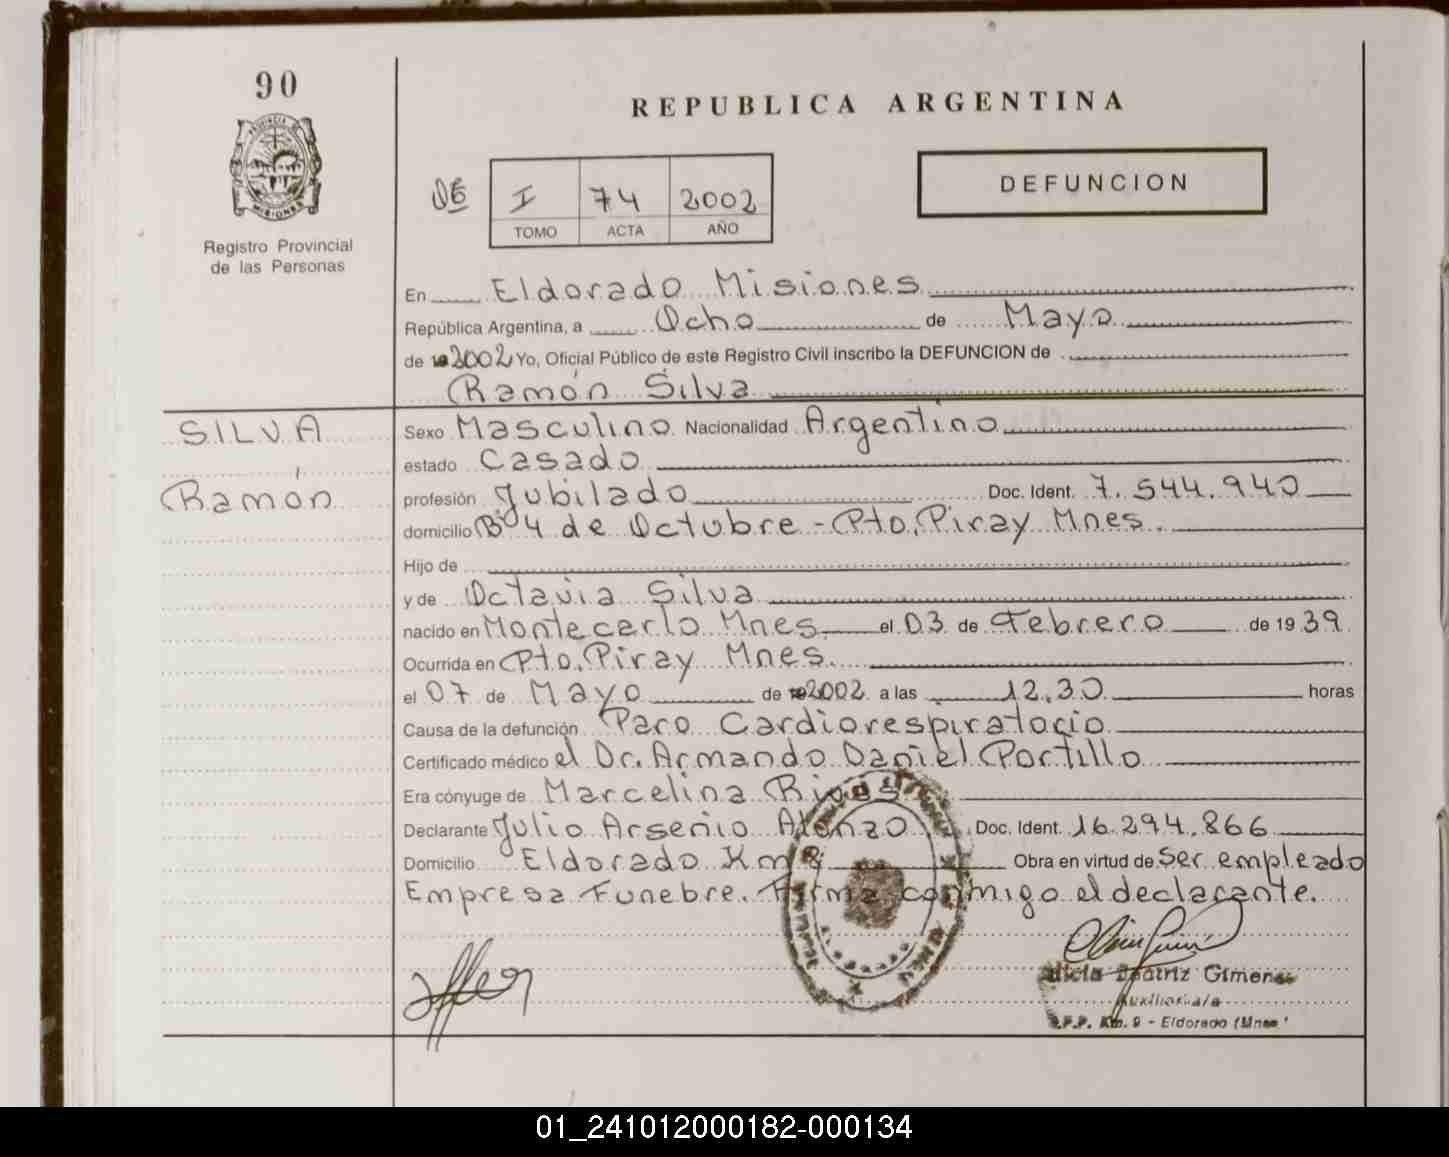 90
REPUBLICA ARGENTINA
PROVINCIA DE
MISIONES
Registro Provincial
de las Personas
DEFUNCION
I 74 2002
TOMO ACTA AÑO
En Eldorado Misiones
República Argentina, a Ocho de Mayo
de 2002 Yo, Oficial Público de este Registro Civil inscribo la DEFUNCION de
Ramón Silva
SILVA
Ramón
Sexo Masculino Nacionalidad Argentino
estado Casado
profesión Jubilado Doc. Ident. 7.544.940
domicilio Bº 4 de Octubre - Pto. Piray Mnes.
Hijo de
y de Octavia Silva
nacido en Montecarlo Mnes el 03 de Febrero de 1939
Ocurrida en Pto. Piray Mnes.
el 07 de Mayo de 2002 a las 12.30 horas
Causa de la defunción Paro Cardiorespiratorio
Certificado médico el Dr. Armando Daniel Portillo
Era cónyuge de Marcelina Rivas
Declarante Julio Arsenio Alonzo Doc. Ident. 16.294.866
Domicilio Eldorado Km 8 Obra en virtud de ser empleado
Empresa Funebre. Firma conmigo el declarante.
Alicia Beatriz Gimenez
Auxiliar a/a
Km. 9 - Eldorado (Mnes.)
01_241012000182-000134